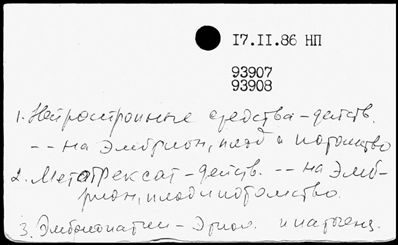 17.II.86 НП
93907
93908
1. Нейротропные средства-действ.
-- на эмбрион, плод и потомство
2. Метотрексат-действ. -- на эмб-
рион, плод и потомство.
3. Эмбриопатии - Этиол. и патоген.